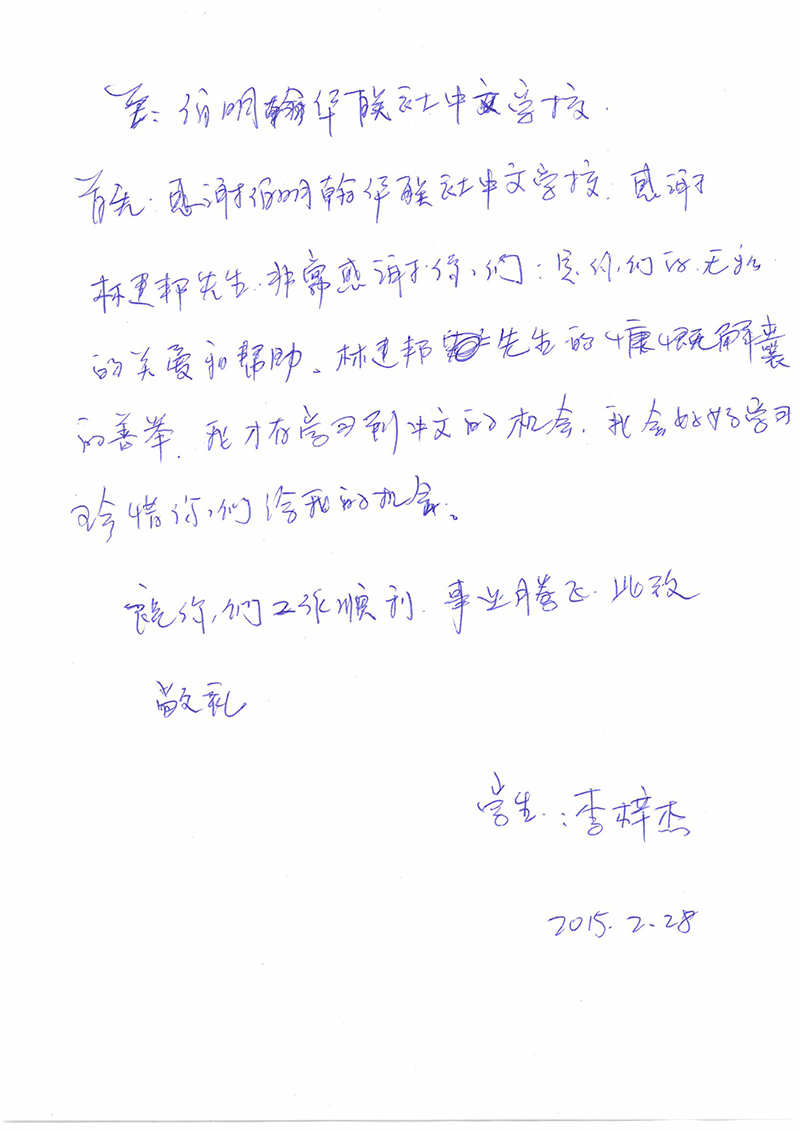 至：伯明翰华联社中文学校.
首先.感谢伯明翰华联社中文学校.感谢
林建邦先生.非常感谢你们：是你们的无私
的关爱和帮助。林建邦先生的慷慨解囊
的善举.我才有学习到中文的机会.我会好好学习
珍惜你们给我的机会。
祝你们工作顺利.事业腾飞.此致
敬礼
学生：李梓杰
2015.2.28